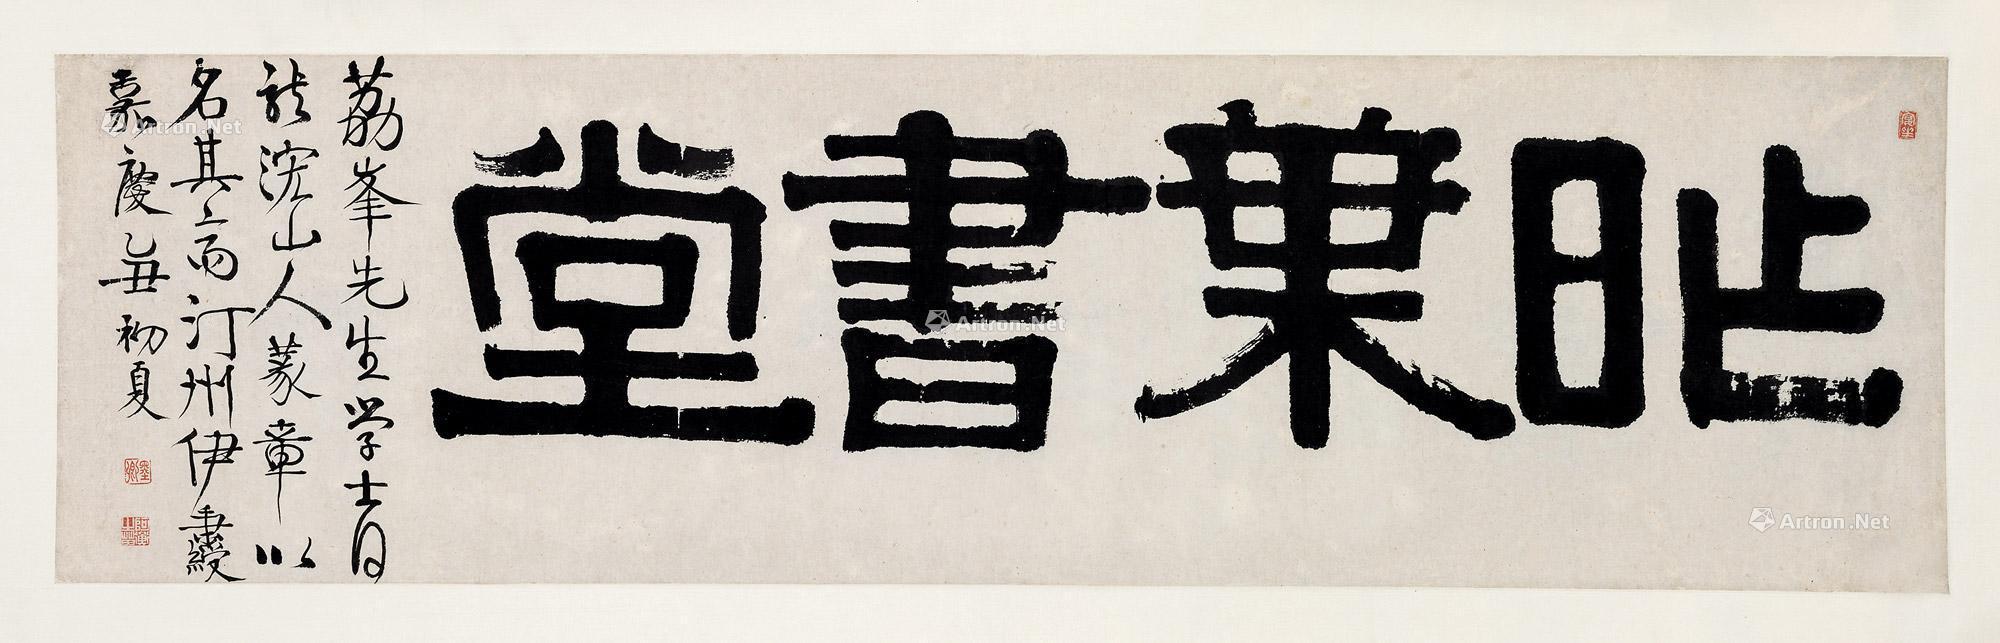 昨葉書堂
荔峯先生學士得
龍泓山人篆章以
名其齋汀州伊秉綬
嘉慶乙丑初夏
墨卿
Artron.Net
Artron.Net
Artron.Net